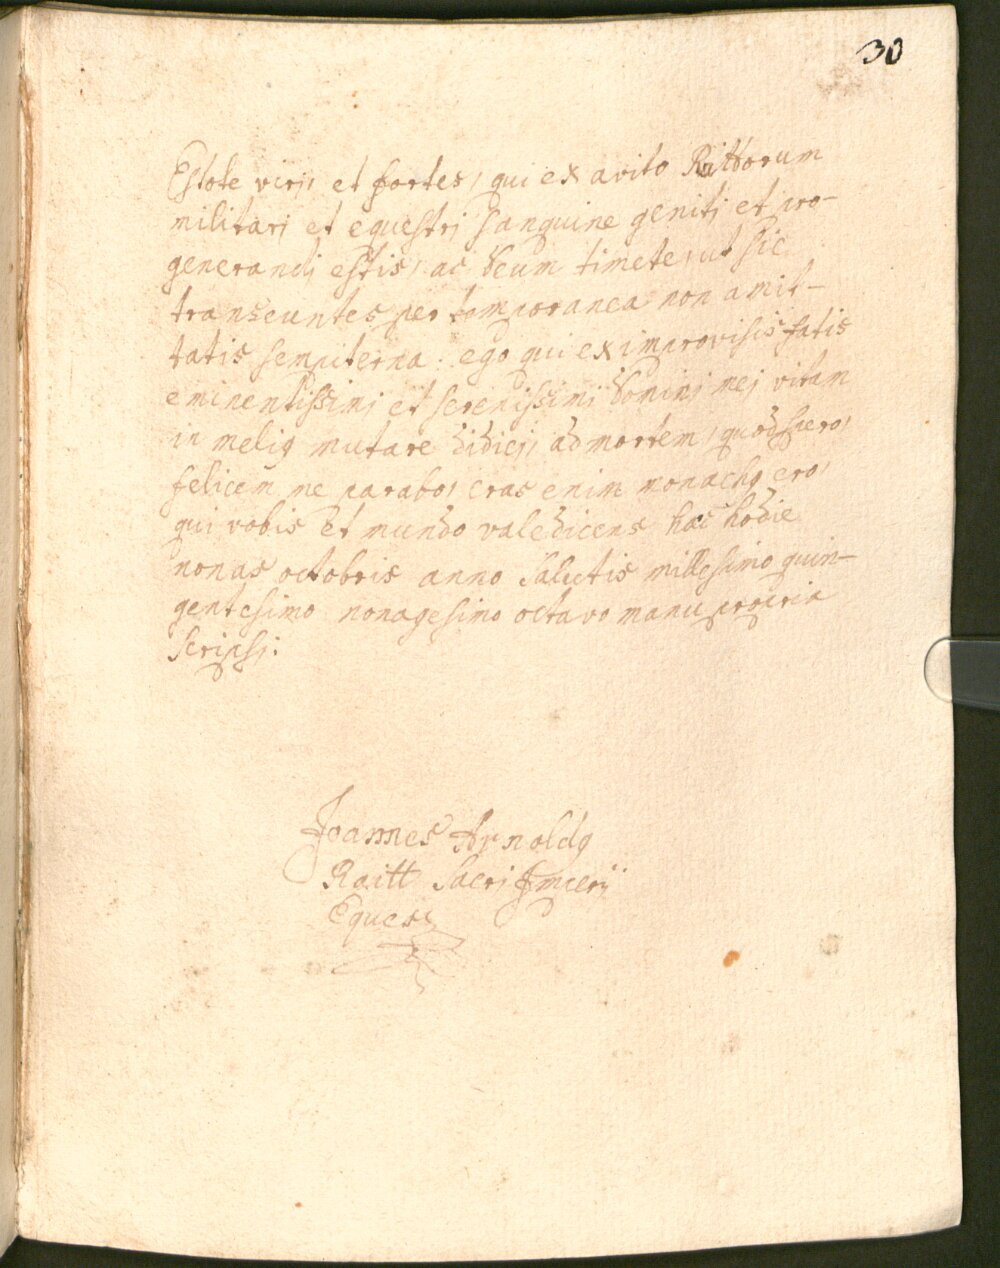 30
Estote virj, et fortes, qui ex avito Raittorum
militarj et equestrj sanguine genitj et pro-
generandj estis, ac Deum timete, ut sic
transeuntes per temporanea non amit-
tatis sempiterna: ego qui ex improvisis fatis
eminentissimj et serenissimj Dominj mej vitam
in meliq mutare didicj, ad mortem, quod spero,
felicem me parabo, cras enim monachq ero,
qui vobis et mundo valedicens hac hodie
nonas octobris anno Salutis millesimo quin-
gentesimo nonagesimo octavo manu propria
scripsj.
Joannes Arnoldq
Raitt Sacrj Jmperij
Eques